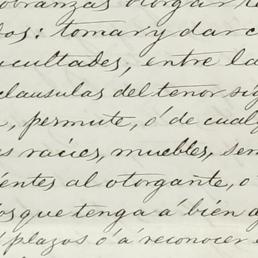 obranzas otorgar
dos: tomar y dar c
cultades, entre la
clausulas del tenor sig
, permute, ó de cualq
s raices, muebles, sem
entes al otorgante, o
os que tenga á bien a
plazos ó á reconocer